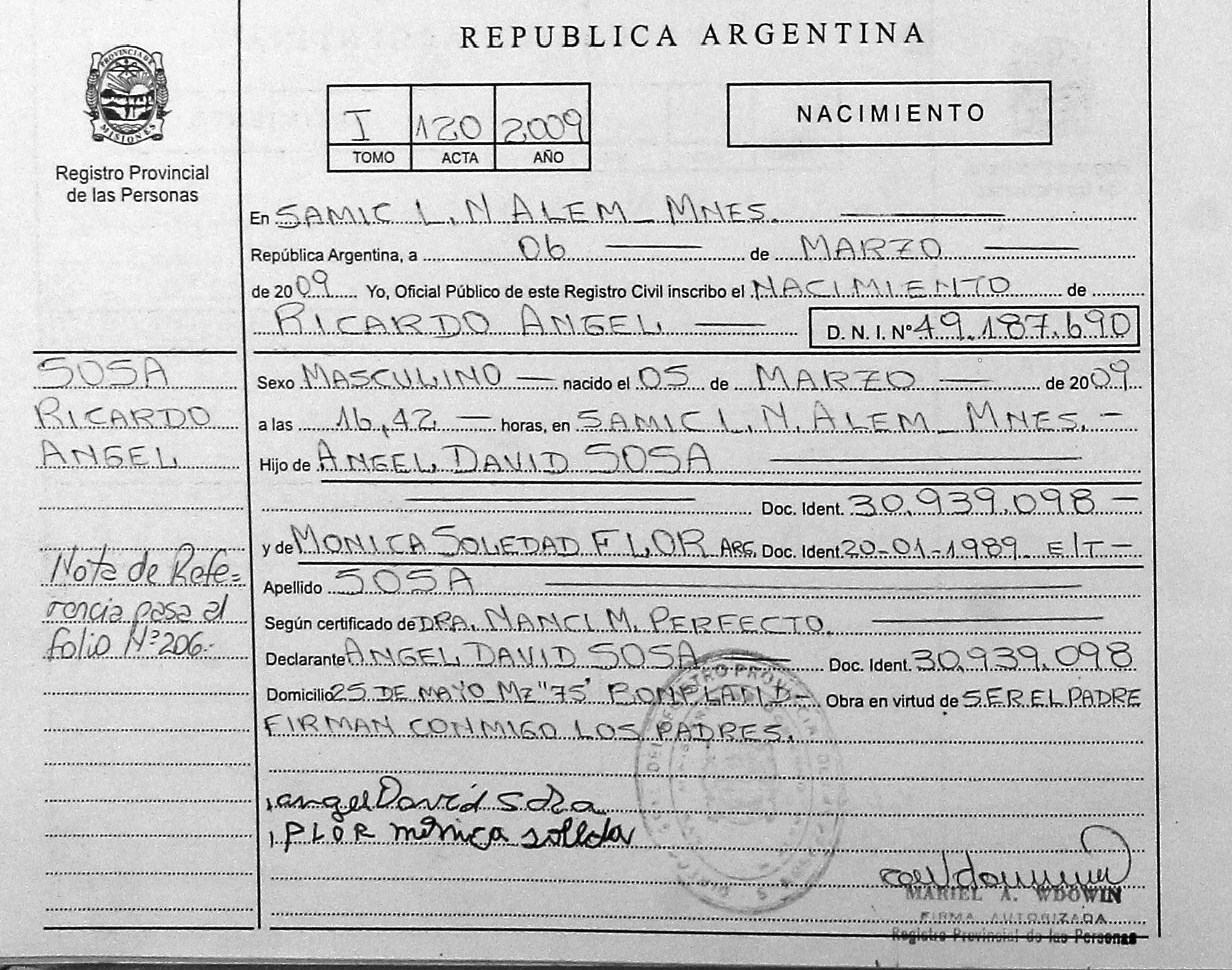 REPUBLICA ARGENTINA
PROVINCIA DE
MISIONES
Registro Provincial
de las Personas
I 120 2009
TOMO ACTA AÑO
NACIMIENTO
En SAMIC L.N ALEM_MNES.
República Argentina, a 06 de MARZO
de 2009 Yo, Oficial Público de este Registro Civil inscribo el NACIMIENTO de
RICARDO ANGEL D. N. I. Nº 49.187.690
SOSA
RICARDO
ANGEL
Sexo MASCULINO nacido el 05 de MARZO de 2009
a las 16,42 horas, en SAMIC L.N. ALEM_MNES.
Hijo de ANGEL DAVID SOSA
Doc. Ident. 30.939.098
y de MONICA SOLEDAD FLOR ARG. Doc. Ident 20-01-1989 E/T
Nota de Refe=
rencia pasa al
folio Nº 206.
Apellido SOSA
Según certificado de DRA. NANCI M. PERFECTO.
Declarante ANGEL DAVID SOSA Doc. Ident. 30.939.098
Domicilio 25 DE MAYO MZ "75" BONPLAND Obra en virtud de SER EL PADRE
FIRMAN CONMIGO LOS PADRES.
angel David Sosa
FLOR monica
MARIEL A. WDOWIN
FIRMA AUTORIZADA
Registro Provincial de las Personas